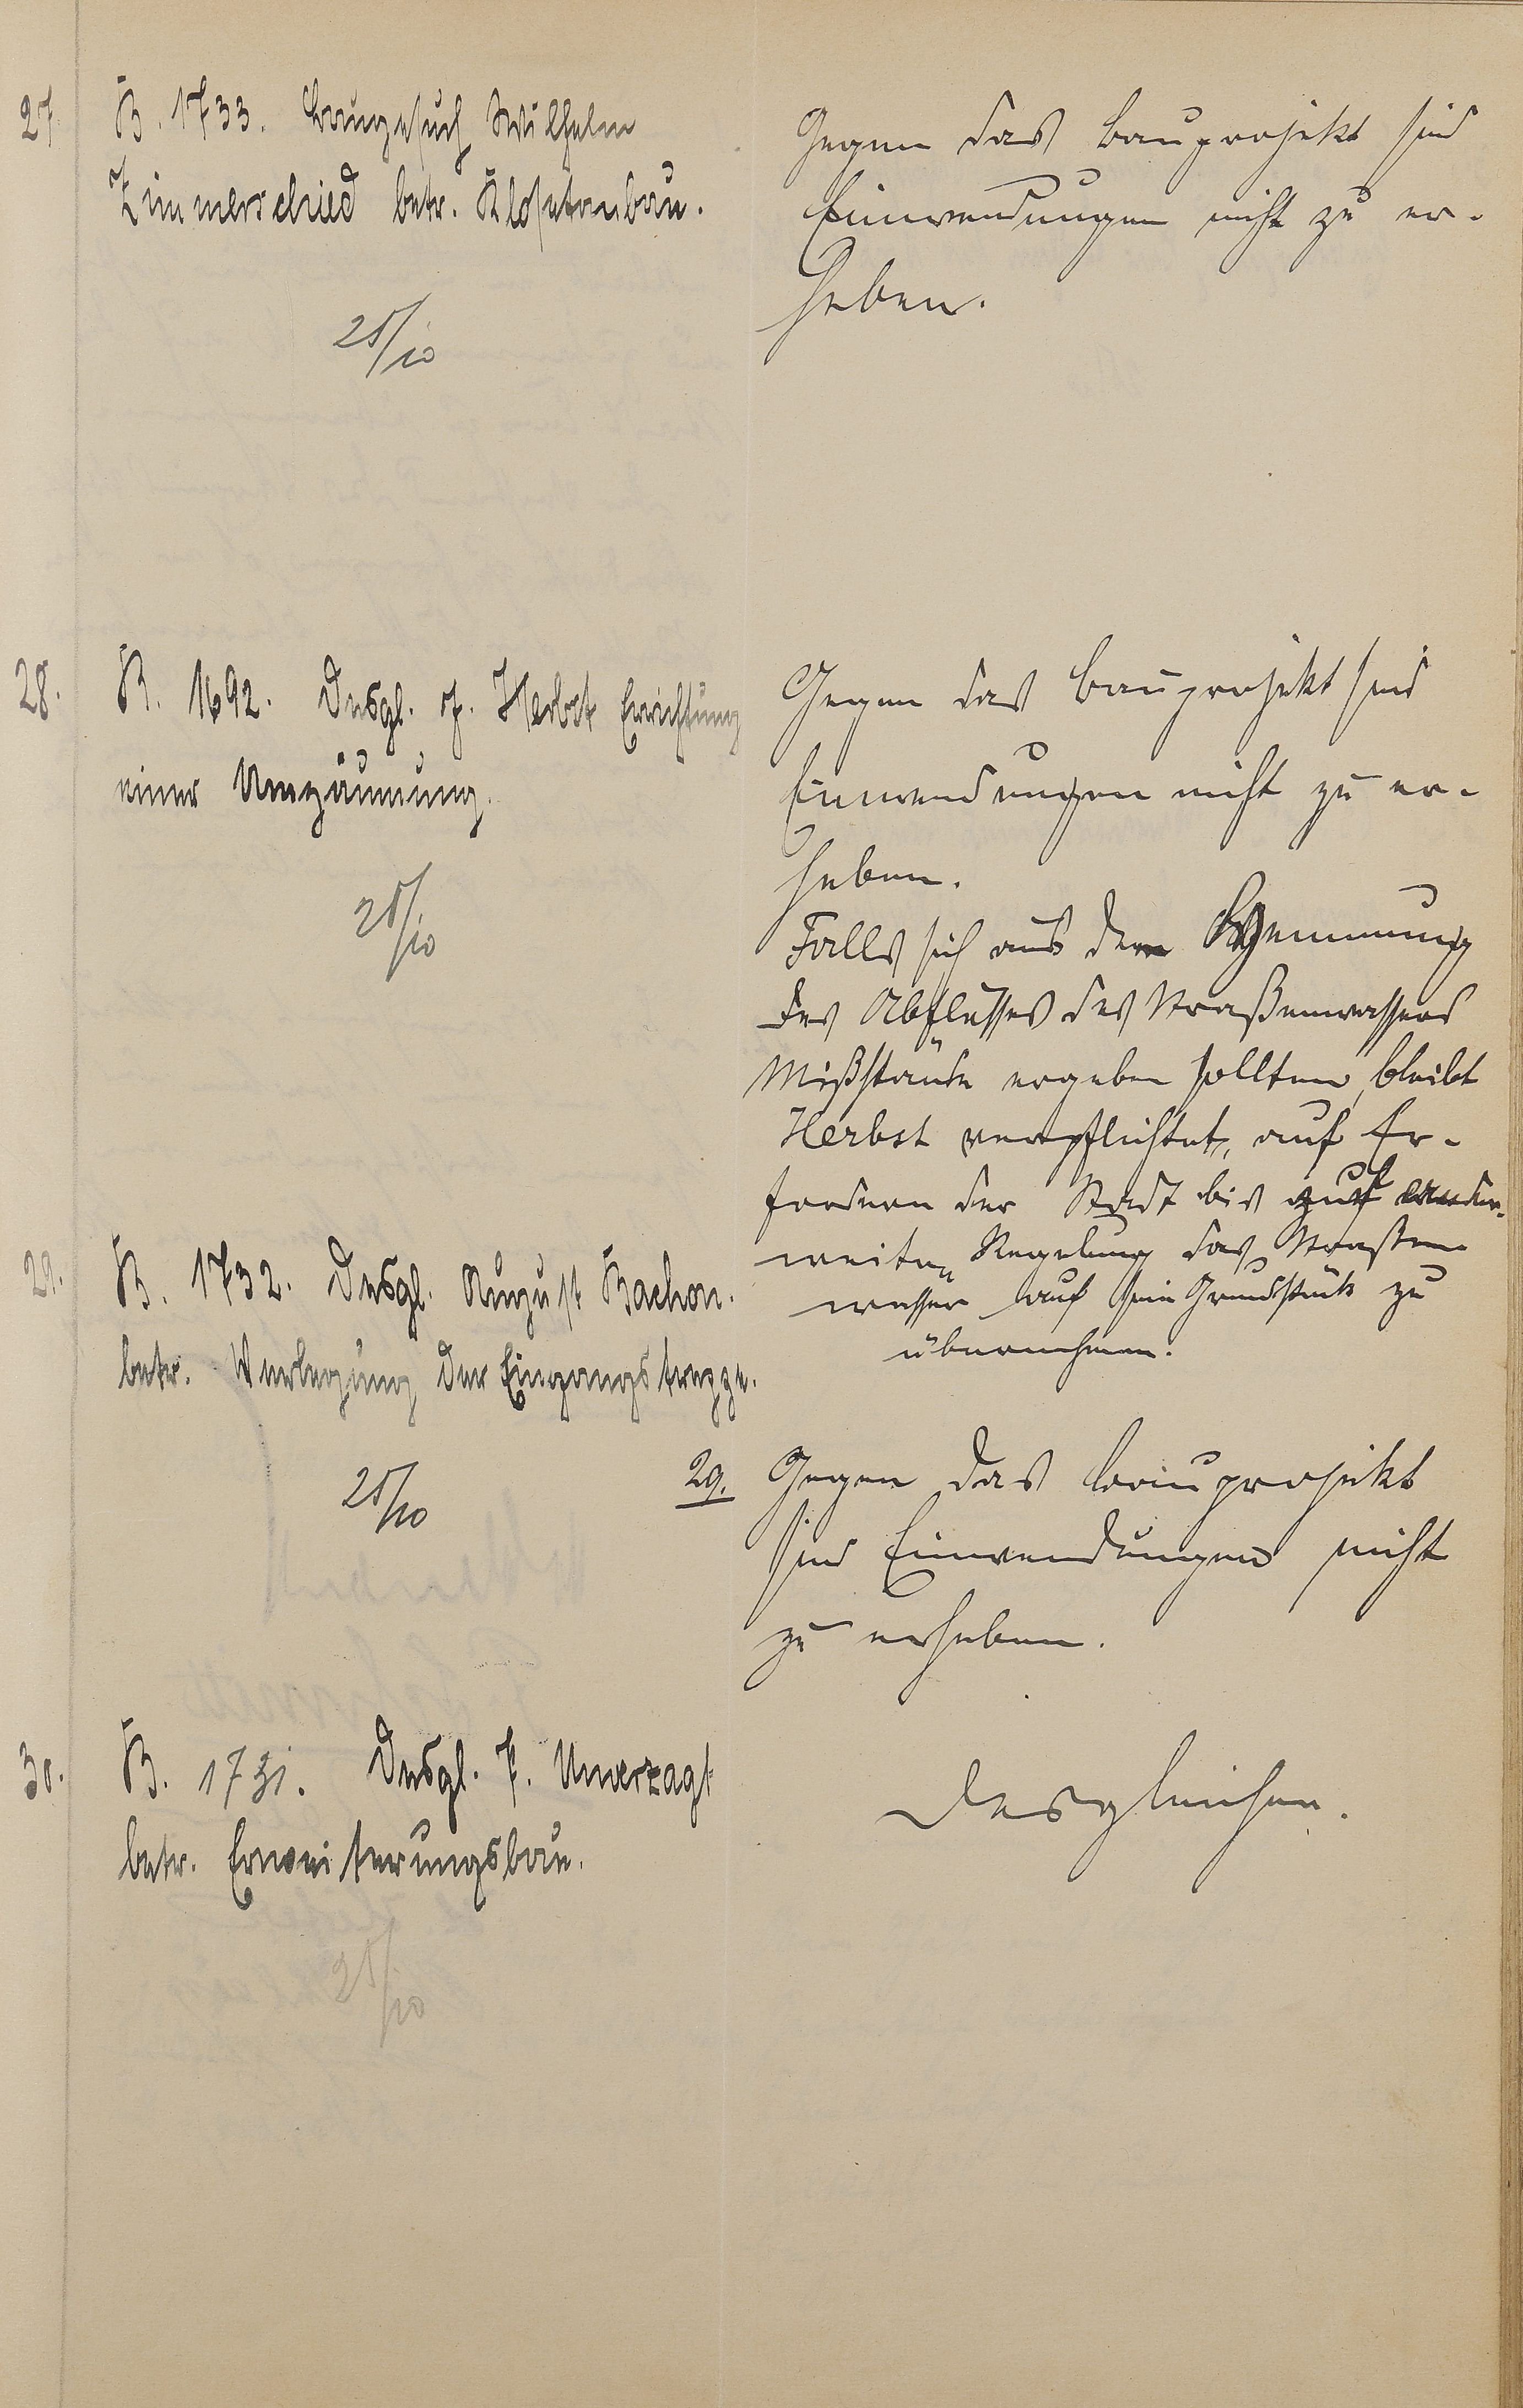 27.
B. 1733. Baugesuch Wilhelm
Zimmerschied betr. Klosetanbau.
25/10
Gegen das Bauprojekt sind
Einwendungen nicht zu er-
heben.
28.
B. 1692. Desgl. Herbst Errichtung
einer Umzäunung.
25/10
Gegen das Bauprojekt sind
Einwendungen nicht zu er-
heben.
Falls sich aus der Hemmung
des Abflusses des Straßenwassers
Mißstände ergeben sollten, bleibt
Herbst verpflichtet, auf Er-
fordern der Stadt bis zur ander-
weiten Regelung das Straßen-
wasser auf sein Grundstück zu
übernehmen.
29.
B. 1732. Desgl. August Bachon.
betr. Verlegung der Eingangstreppe.
25/10
29. Gegen das Bauprojekt
sind Einwendungen nicht
zu erheben.
30.
B. 1731. Desgl. F. Unverzagt
betr. Erweiterungsbau.
25/10
Desgleichen.